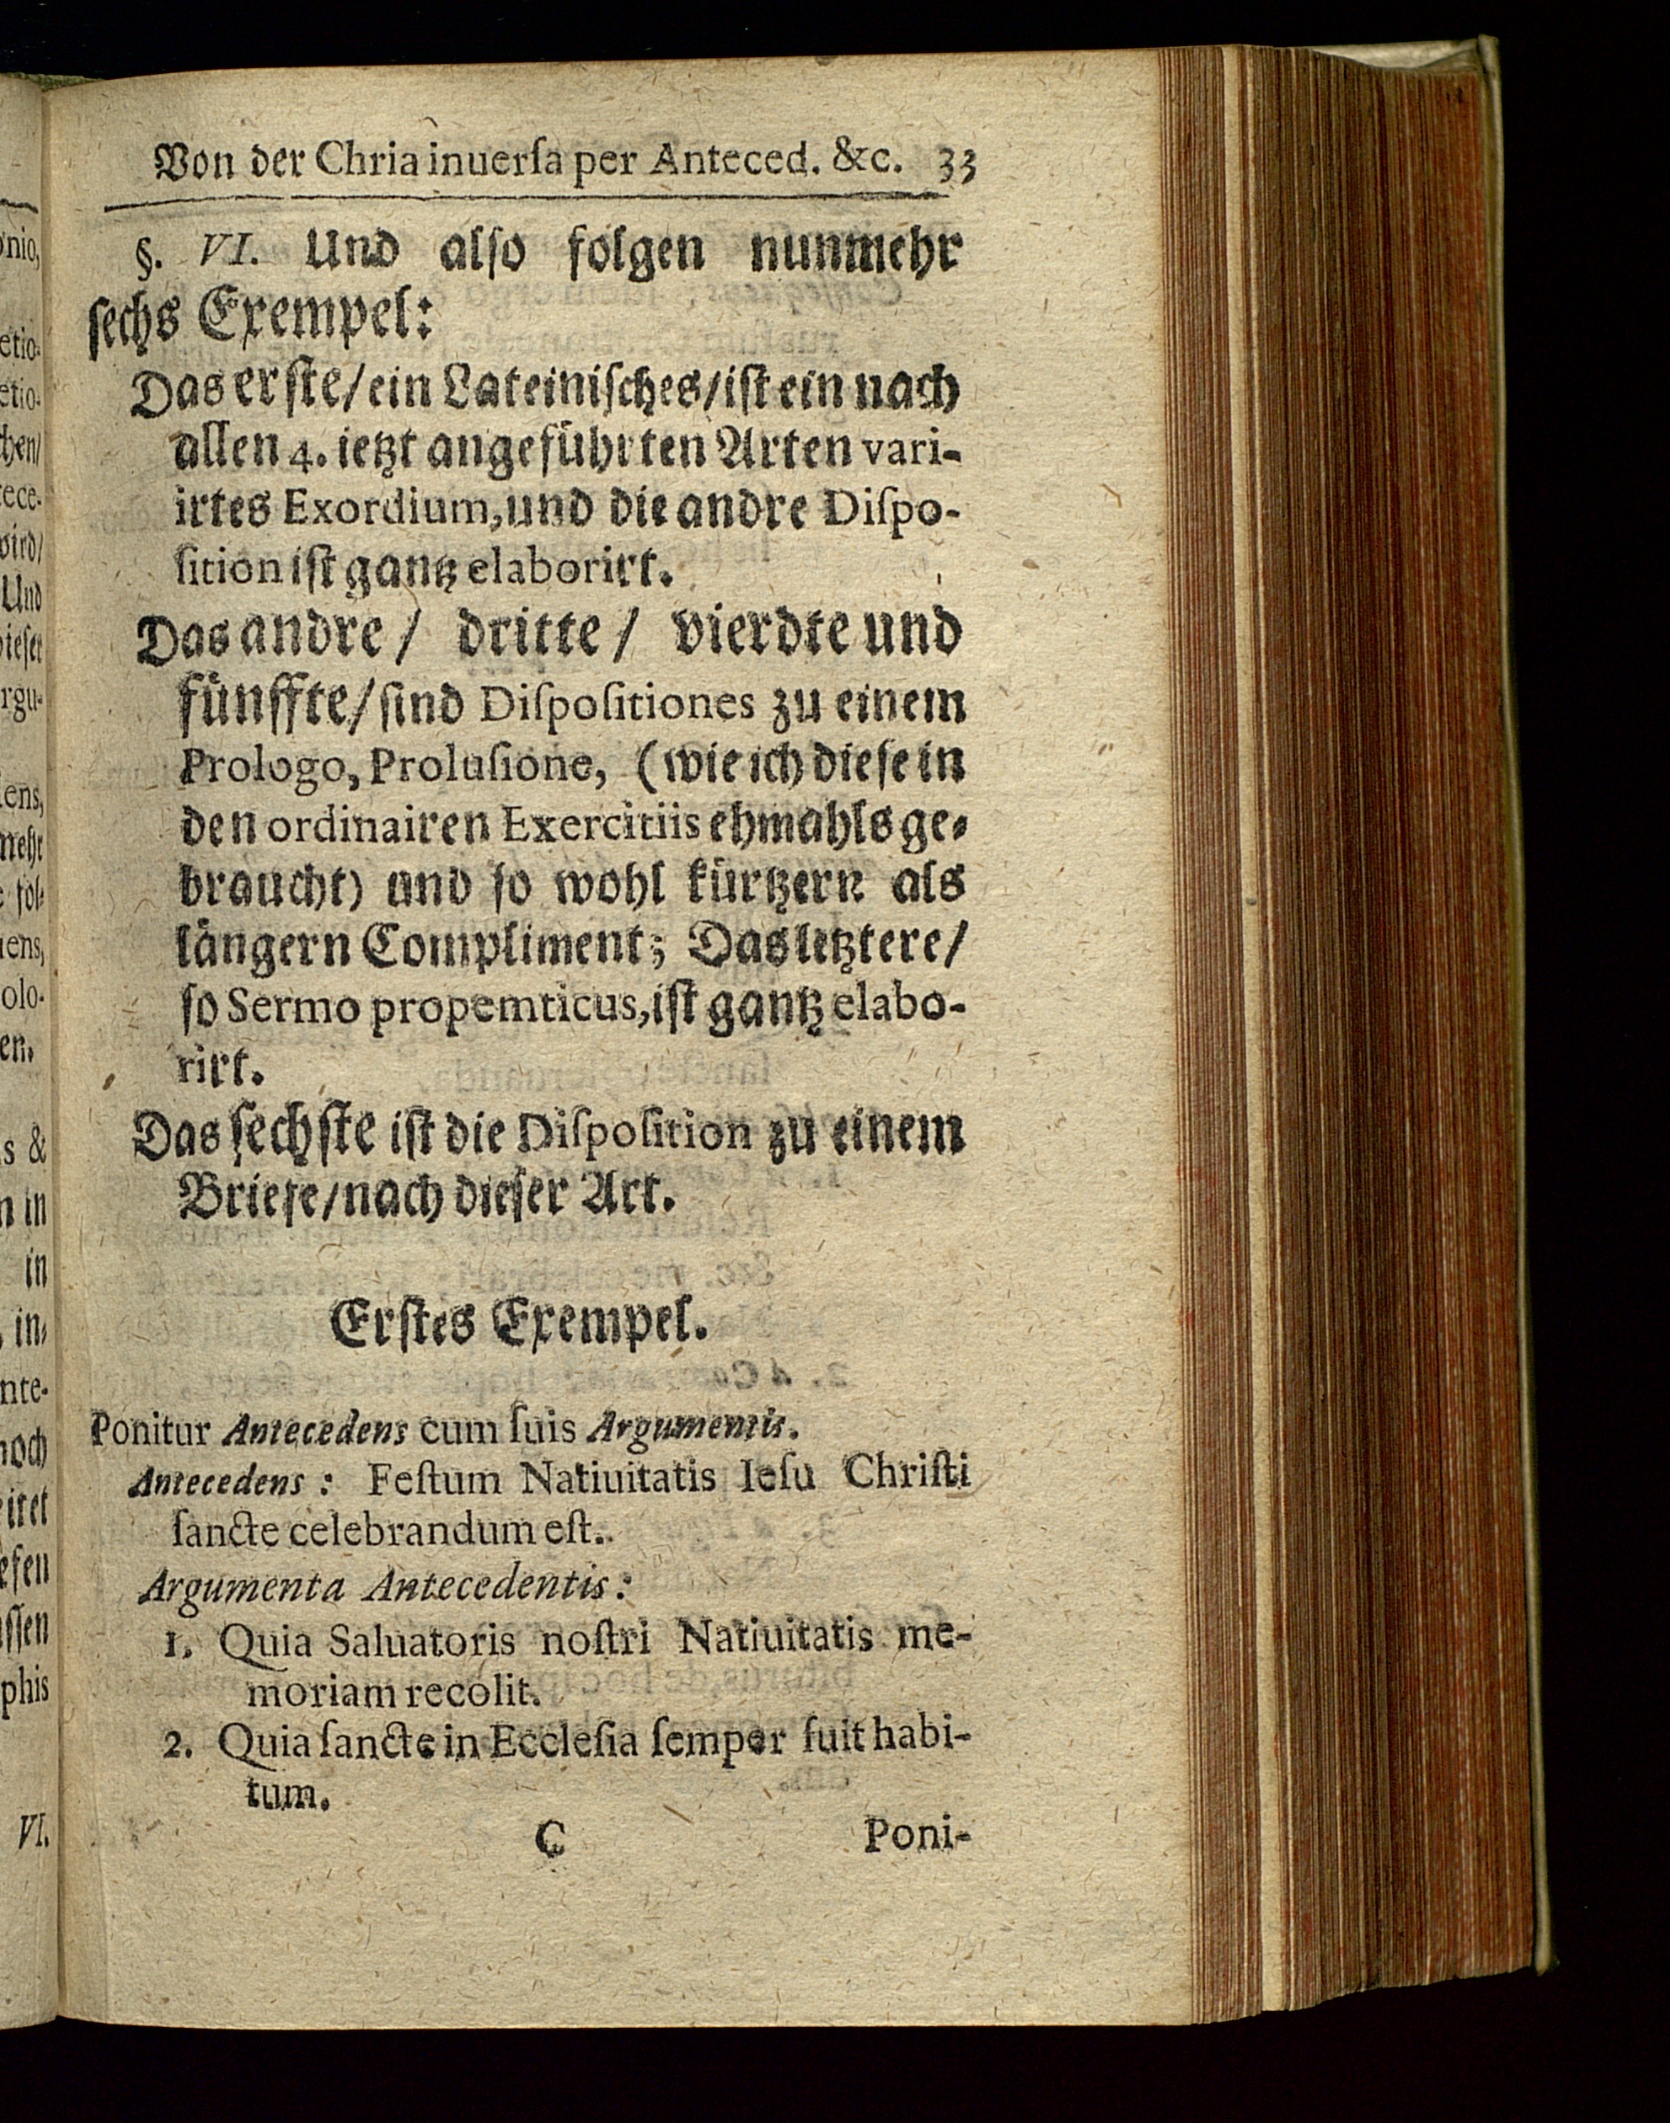 Von der Chria inuerſa per Anteced. &c. 33
§. VI. Und alſo folgen nunmehr
ſechs Exempel:
Das erſte/ ein Lateiniſches/ iſt ein nach
allen 4. ietzt angeführten Arten vari-
irtes Exordium, und die andre Diſpo-
ſition iſt gantz elaborirt.
Das andre/ dritte/ vierdte und
fünffte/ ſind Diſpoſitiones zu einem
Prologo, Proluſione, (wie ich dieſe in
den ordinairen Exercitiis ehmahls ge-
braucht) und ſo wohl kürtzern als
längern Compliment; Das letztere/
ſo Sermo propemticus, iſt gantz elabo-
rirt.
Das ſechſte iſt die Diſpoſition zu einem
Briefe/ nach dieſer Art.
Erſtes Exempel.
Ponitur Antecedens cum ſuis Argumentis.
Antecedens: Feſtum Natiuitatis Ieſu Chriſti
ſancte celebrandum eſt.
Argumenta Antecedentis:
1. Quia Saluatoris noſtri Natiuitatis me-
moriam recolit.
2. Quia ſancte in Eccleſia ſemper fuit habi-
tum.
C Poni-